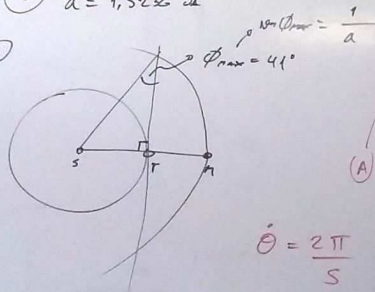 a = 1,52
sin Φmax = 1/a
Φmax = 41°
S T M
A
θ̇ = 2π/S